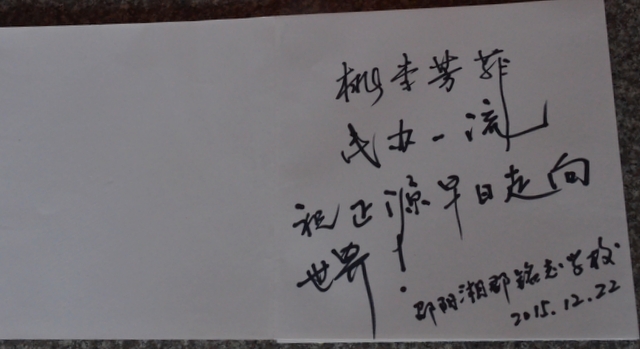 桃李芳菲
民办一流
祝正源早日走向
世界！
邵阳湘郡铭志学校
2015.12.22